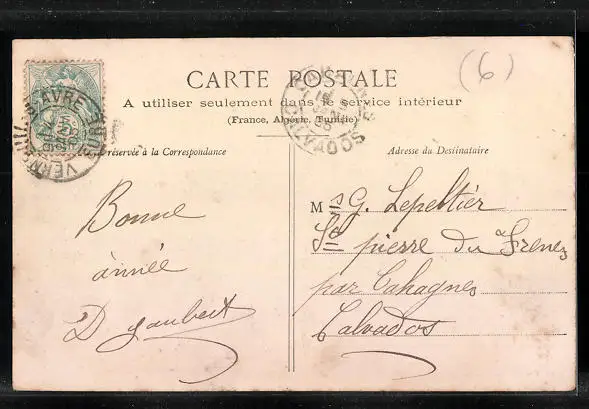 (6)
CARTE POSTALE
A utiliser seulement dans le service intérieur
(France, Algérie, Tunisie)
réservée à la Correspondance
Adresse du Destinataire
Bonne
année
D Gaubert
M G. Lepeltier
St pierre du Frenes
par Cahagnes
Calvados
D'AVRE
EURE
VERN
CALVADOS